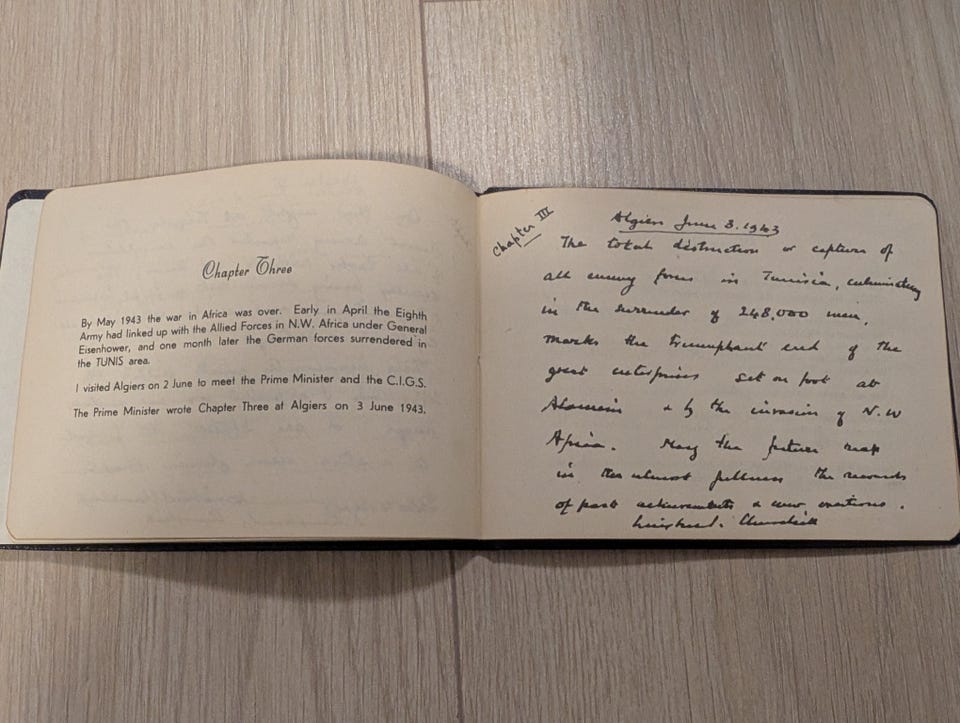 Chapter Three
By May 1943 the war in Africa was over. Early in April the Eighth
Army had linked up with the Allied Forces in N.W. Africa under General
Eisenhower, and one month later the German forces surrendered in
the TUNIS area.
I visited Algiers on 2 June to meet the Prime Minister and the C.I.G.S.
The Prime Minister wrote Chapter Three at Algiers on 3 June 1943.
Chapter III
Algiers June 3. 1943
The total destruction or capture of
all enemy forces in Tunisia, culminating
in the surrender of 248,000 men,
marks the triumphant end of the
great enterprises set on foot at
Alamein & by the invasion of N.W
Africa. May the future reap
in the utmost fullness the rewards
of past achievements & new exertions.
Winston S. Churchill